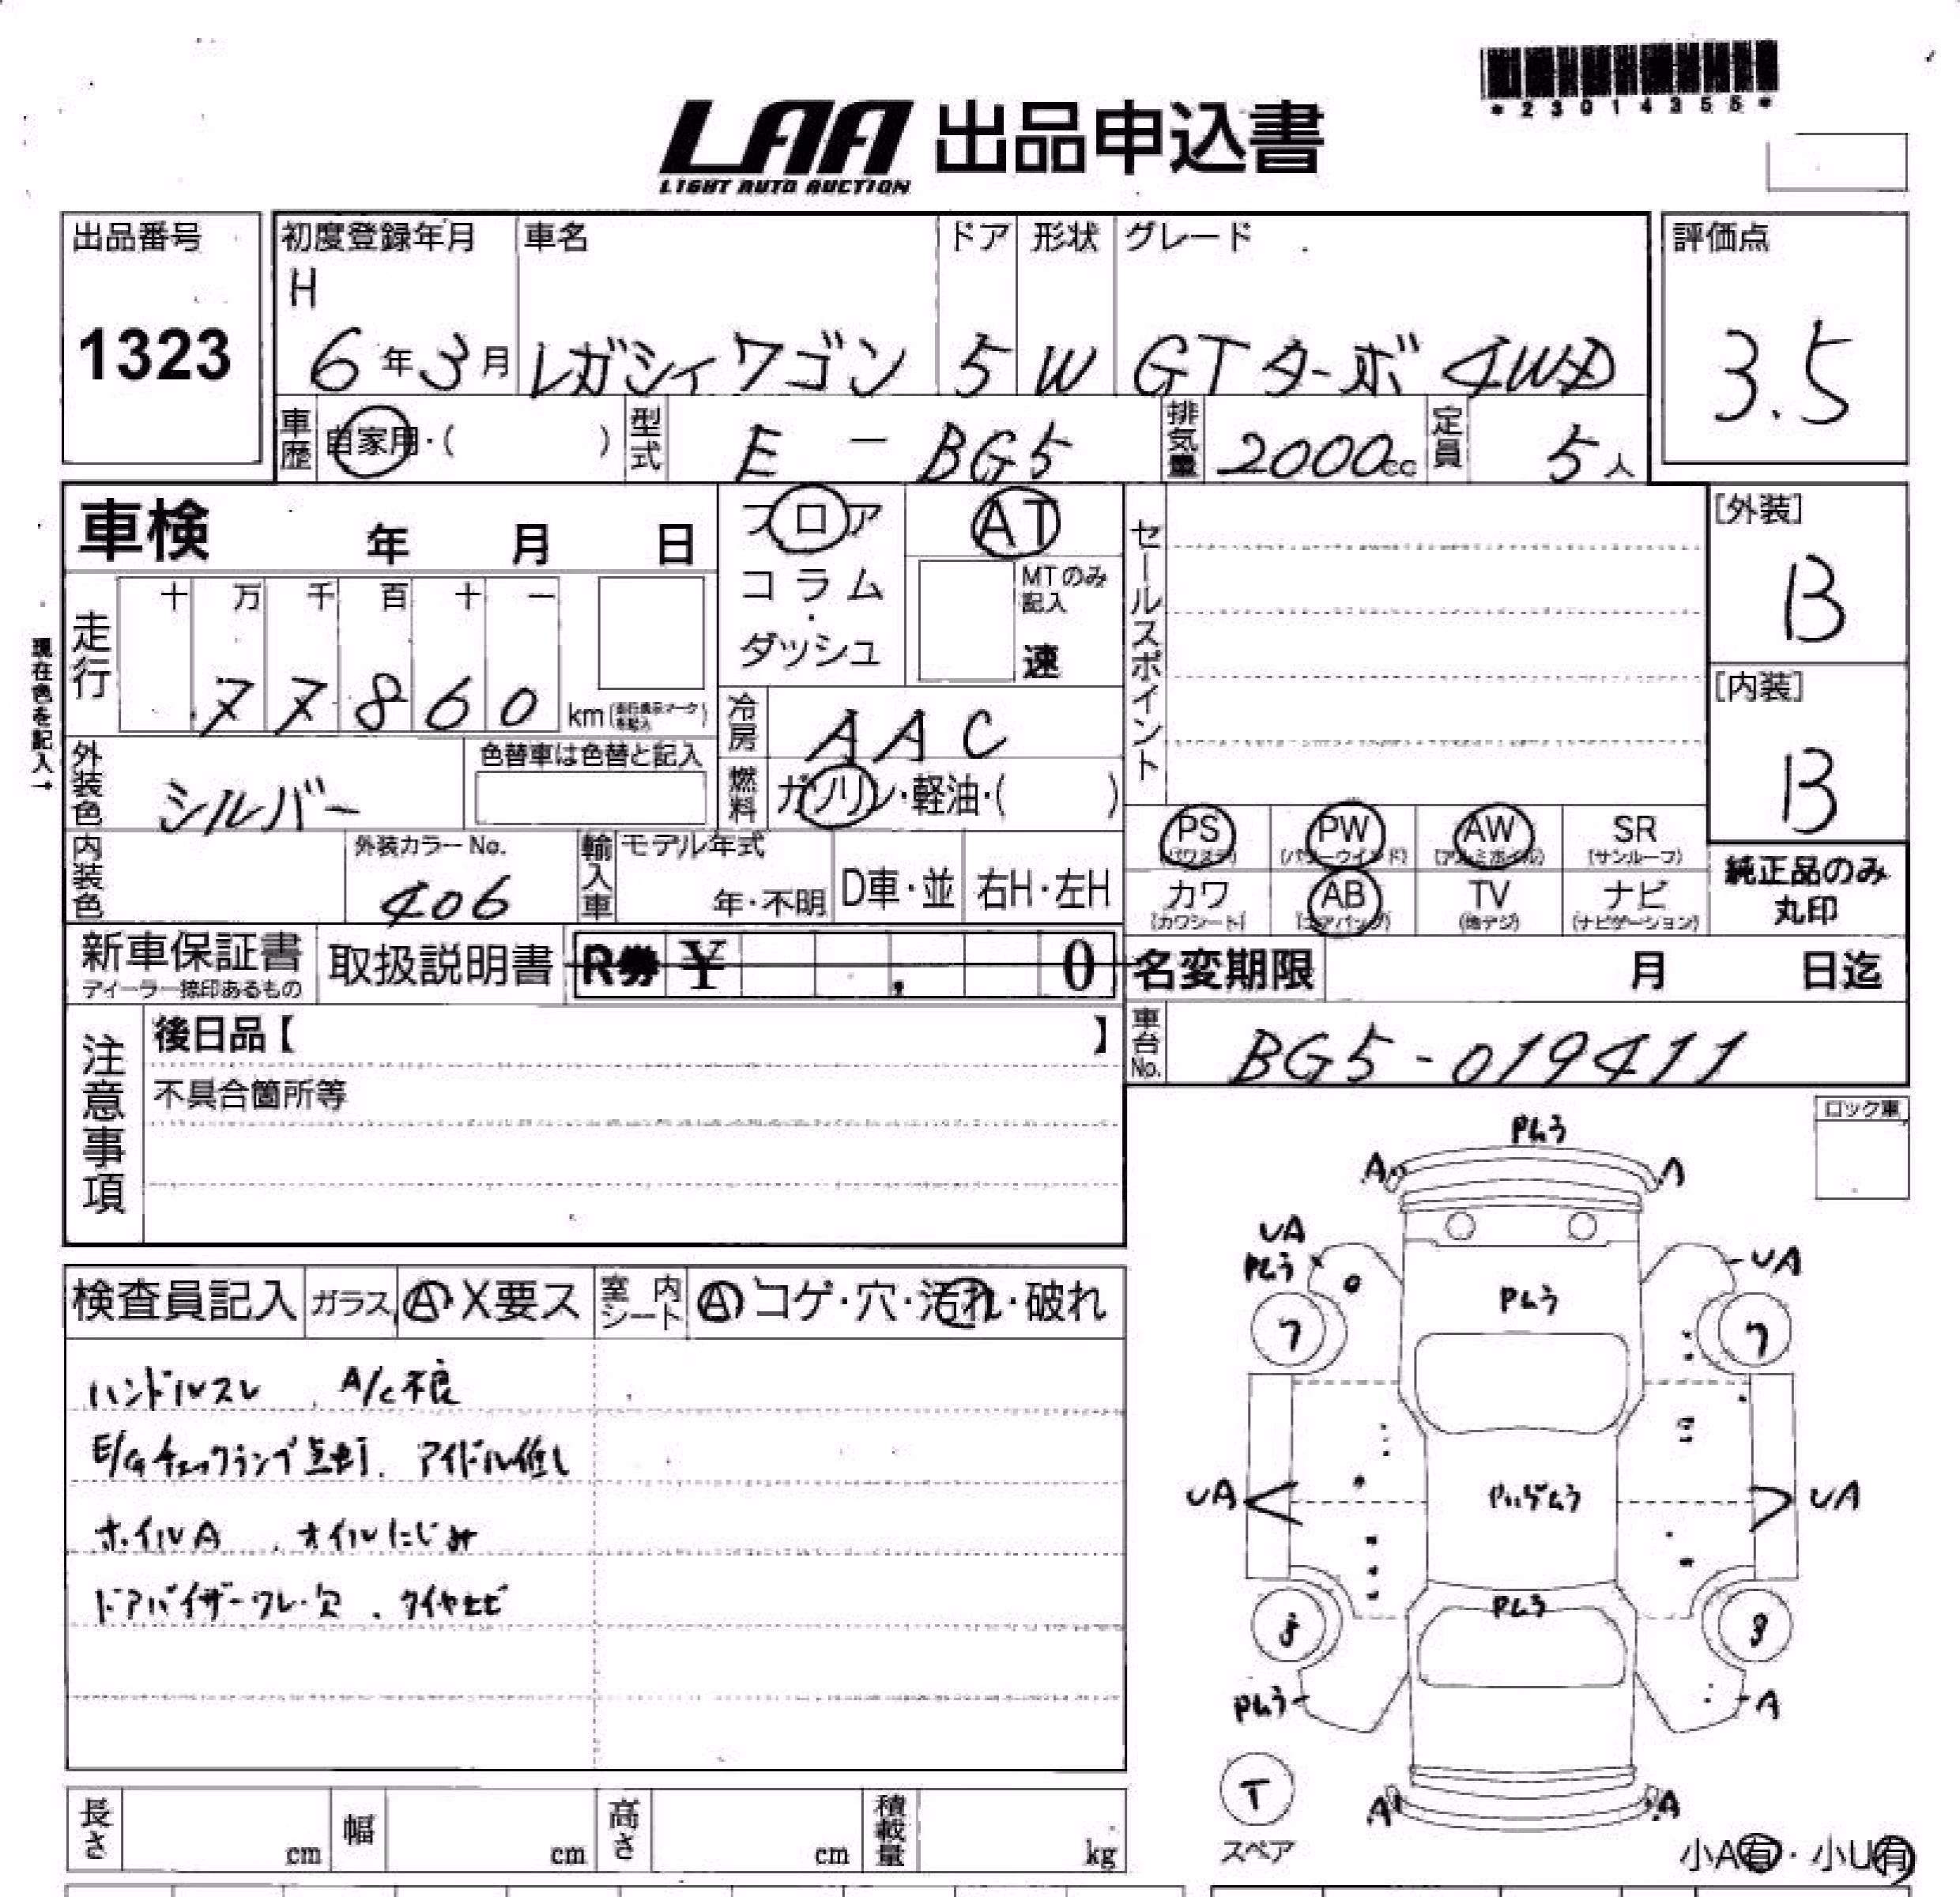 *23014355*
LAA 出品申込書
LIGHT AUTO AUCTION
出品番号
1323
初度登録年月 車名 ドア 形状 グレード
H
6年3月 レガシィワゴン 5 W GTターボ 4WD
評価点
3.5
車歴 自家用・( ) 型式 E-BG5 排気量 2000cc 定員 5人
車検 年 月 日
フロア AT
コラム・
ダッシュ
MTのみ記入
速
セールスポイント
[外装]
B
[内装]
B
現在色を記入→
走行 十 万 千 百 十 一
77860 km
冷房 AAC
外装色 シルバー 色替車は色替と記入
燃料 ガソリン・軽油・( )
PS PW AW SR
(パワステ) (パワーウインド) (アルミホイル) (サンルーフ)
カワ AB TV ナビ
(カワシート) (エアバック) (地デジ) (ナビゲーション)
純正品のみ
丸印
内装色 外装カラーNo.
406
輸入車 モデル年式
年・不明 D車・並 右H・左H
新車保証書 取扱説明書 R券 ¥ , 0
ディーラー捺印あるもの
名変期限 月 日迄
車台No. BG5-019411
注意事項
後日品【 】
不具合箇所等
ロック車
検査員記入 ガラス A・X要ス 室内シート A コゲ・穴・汚れ・破れ
ハンドルスレ、A/C不良
E/Gチェックランプ点灯、アイドル低し
ホイルA、オイルにじみ
ドアバイザーワレ・欠、タイヤヒビ
Pムラ
A A
UA
Pムラ
UA
Pムラ
7 7
UA UA
Pムラ
Pムラ A
T
スペア
A A
小A有・小U有
長さ cm 幅 cm 高さ cm 積載量 kg